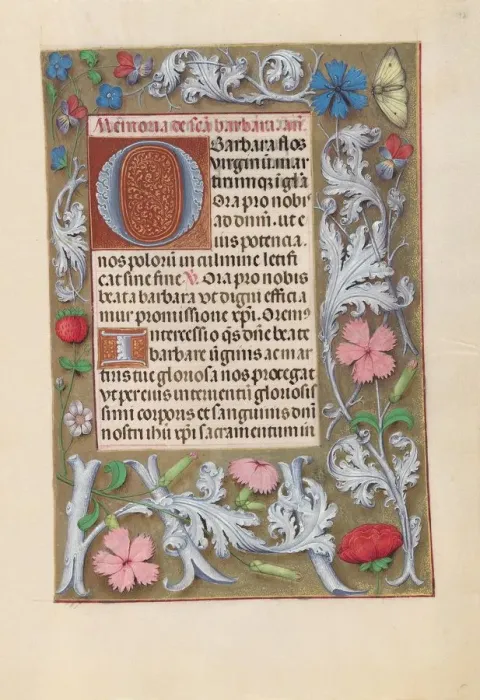 Memoria de scā barbara. an̄.
O Barbara flos
virginū mar
tirum qz igl̄a
Ora pro nobi⁹
ad dnm̄. ut e
ius potencia.
nos polorū in culmine letifi
cat sine fine V. Ora pro nobis
beata barbara vt digni efficia
mur promissione xp̄i. Oremus
Intercessio q̄s dn̄e beate
barbare v̄ginis ac mar
tiris tue gloriosa nos protegat
vt per eius interuentū gloriosis
simi corporis et sanguinis dn̄i
nostri ihū xp̄i sacramentum in